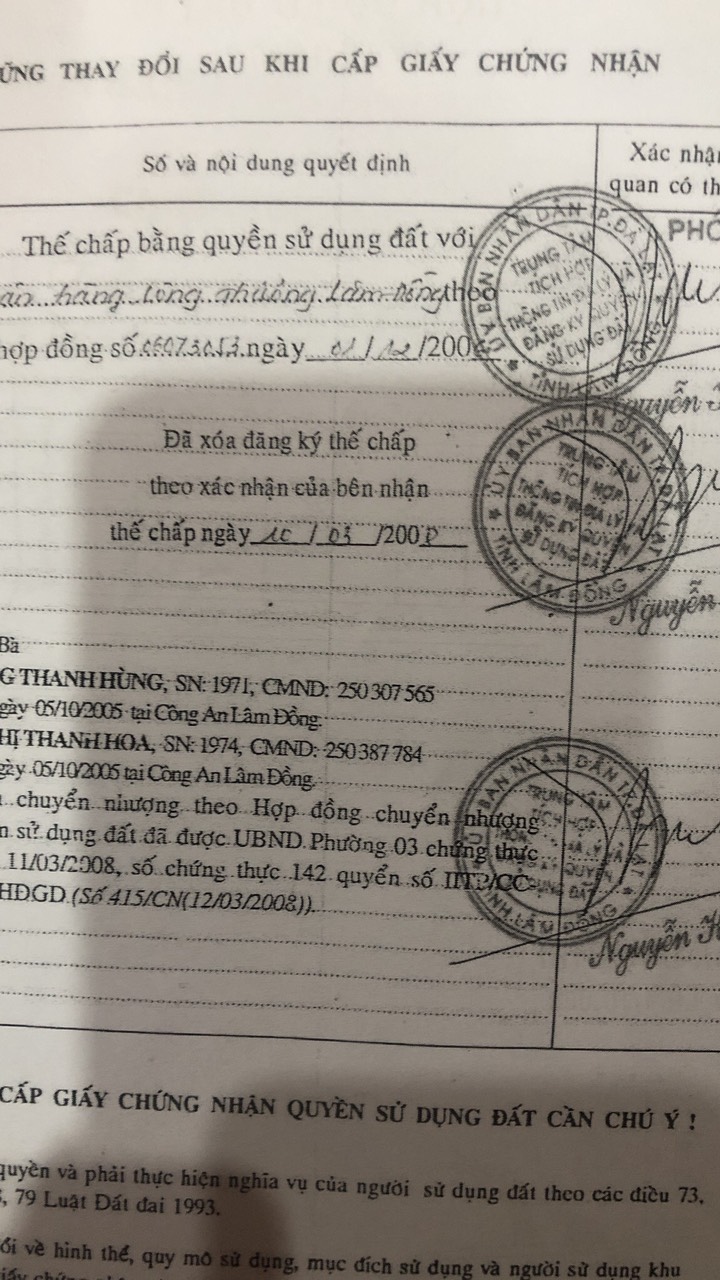 ỮNG THAY ĐỔI SAU KHI CẤP GIẤY CHỨNG NHẬN
Số và nội dung quyết định
Xác nhậ
quan có th
Thế chấp bằng quyền sử dụng đất với
PHÓ
hàng công thương Lâm Đồng theo
hợp đồng số ngày 01/12/200
ỦY BAN NHÂN DÂN TP. ĐÀ LẠT
TRUNG TÂM
TÍCH HỢP
THÔNG TIN ĐỊA LÝ VÀ
ĐĂNG KÝ QUYỀN
SỬ DỤNG ĐẤT
TỈNH LÂM ĐỒNG
Nguyễn
Đã xóa đăng ký thế chấp
theo xác nhận của bên nhận
thế chấp ngày 10/03/200
ỦY BAN NHÂN DÂN TP. ĐÀ LẠT
TRUNG TÂM
TÍCH HỢP
THÔNG TIN ĐỊA LÝ VÀ
ĐĂNG KÝ QUYỀN
SỬ DỤNG ĐẤT
TỈNH LÂM ĐỒNG
Nguyễn
Bà
G THANH HÙNG, SN: 1971, CMND: 250 307 565
gày 05/10/2005 tại Công An Lâm Đồng.
HỊ THANH HOA, SN: 1974, CMND: 250 387 784
gày 05/10/2005 tại Công An Lâm Đồng.
chuyển nhượng theo Hợp đồng chuyển nhượng
n sử dụng đất đã được UBND Phường 03 chứng thực
11/03/2008, số chứng thực 142 quyển số IITP/CC-
HĐGD (Số 415/CN(12/03/2008)).
ỦY BAN NHÂN DÂN TP. ĐÀ LẠT
TRUNG TÂM
TÍCH HỢP
TỈNH LÂM ĐỒNG
Nguyễn K
CẤP GIẤY CHỨNG NHẬN QUYỀN SỬ DỤNG ĐẤT CẦN CHÚ Ý !
quyền và phải thực hiện nghĩa vụ của người sử dụng đất theo các điều 73,
, 79 Luật Đất đai 1993.
ổi về hình thể, quy mô sử dụng, mục đích sử dụng và người sử dụng khu